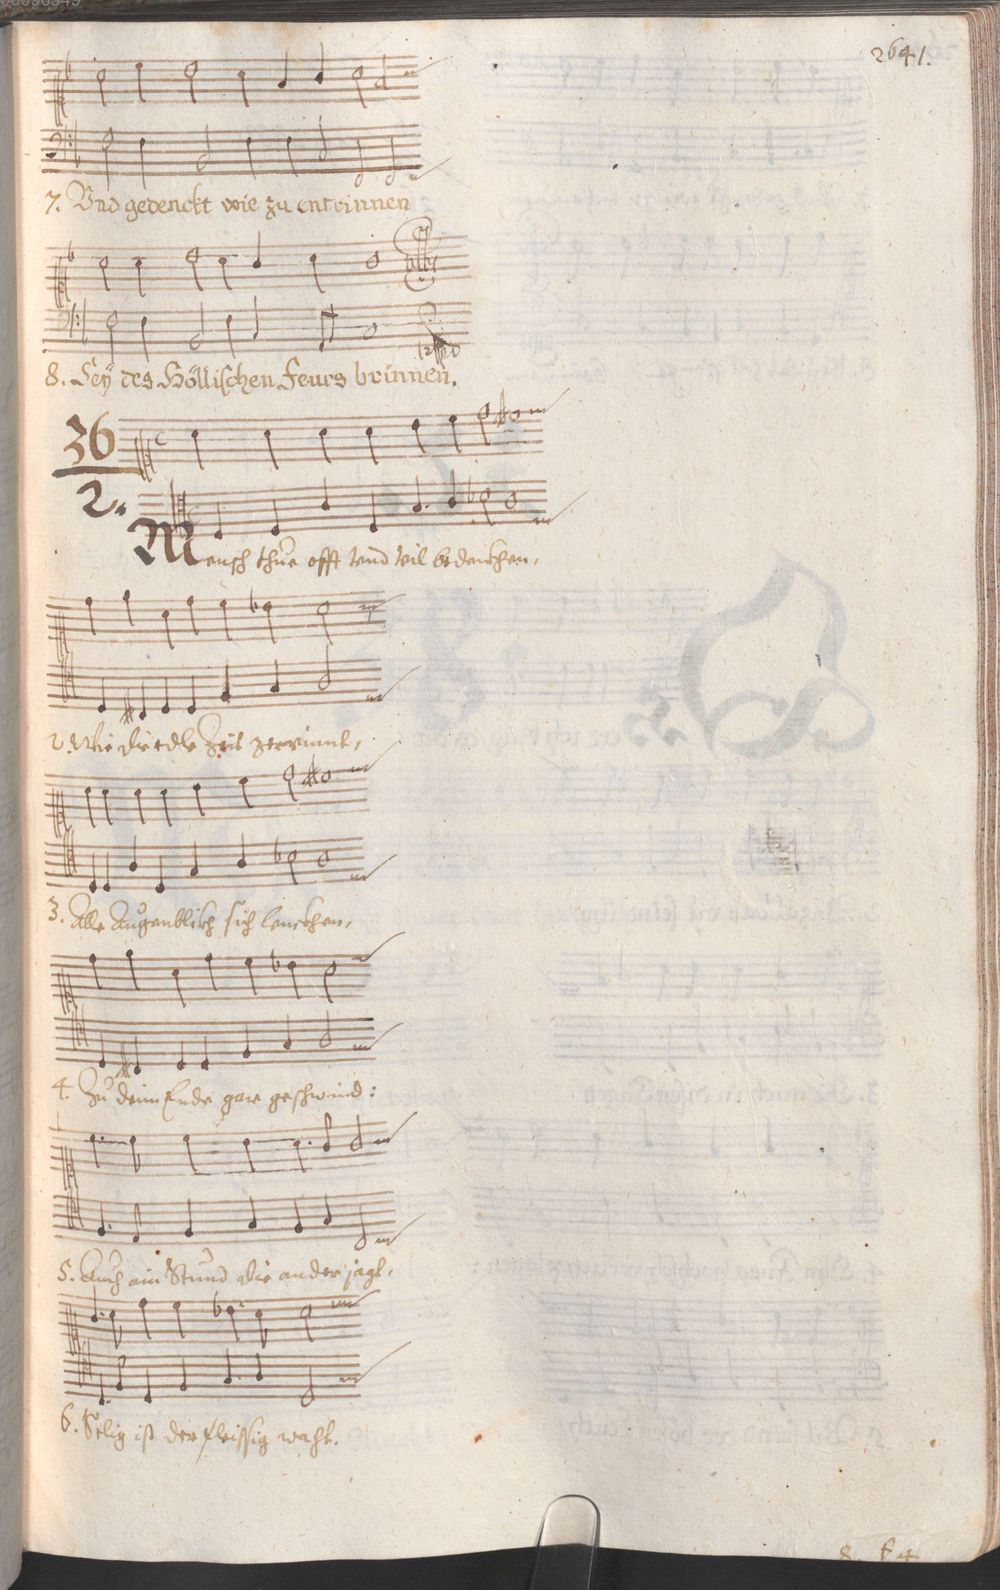 2641.
7. Vnd gedenckt wie zu entrinnen
8. Seÿ des Höllischen Feurs brinnen.
36
2.
Mensch thue offt vnd vil bedenckhen,
2. Wie die edle Zeit zerrinnt,
3. Alle Augenblickh sich lenckhen,
4. Zu deim Ende gar geschwind:
5. Auch ain Stund die ander jagt,
6. Selig ist der fleissig wacht.